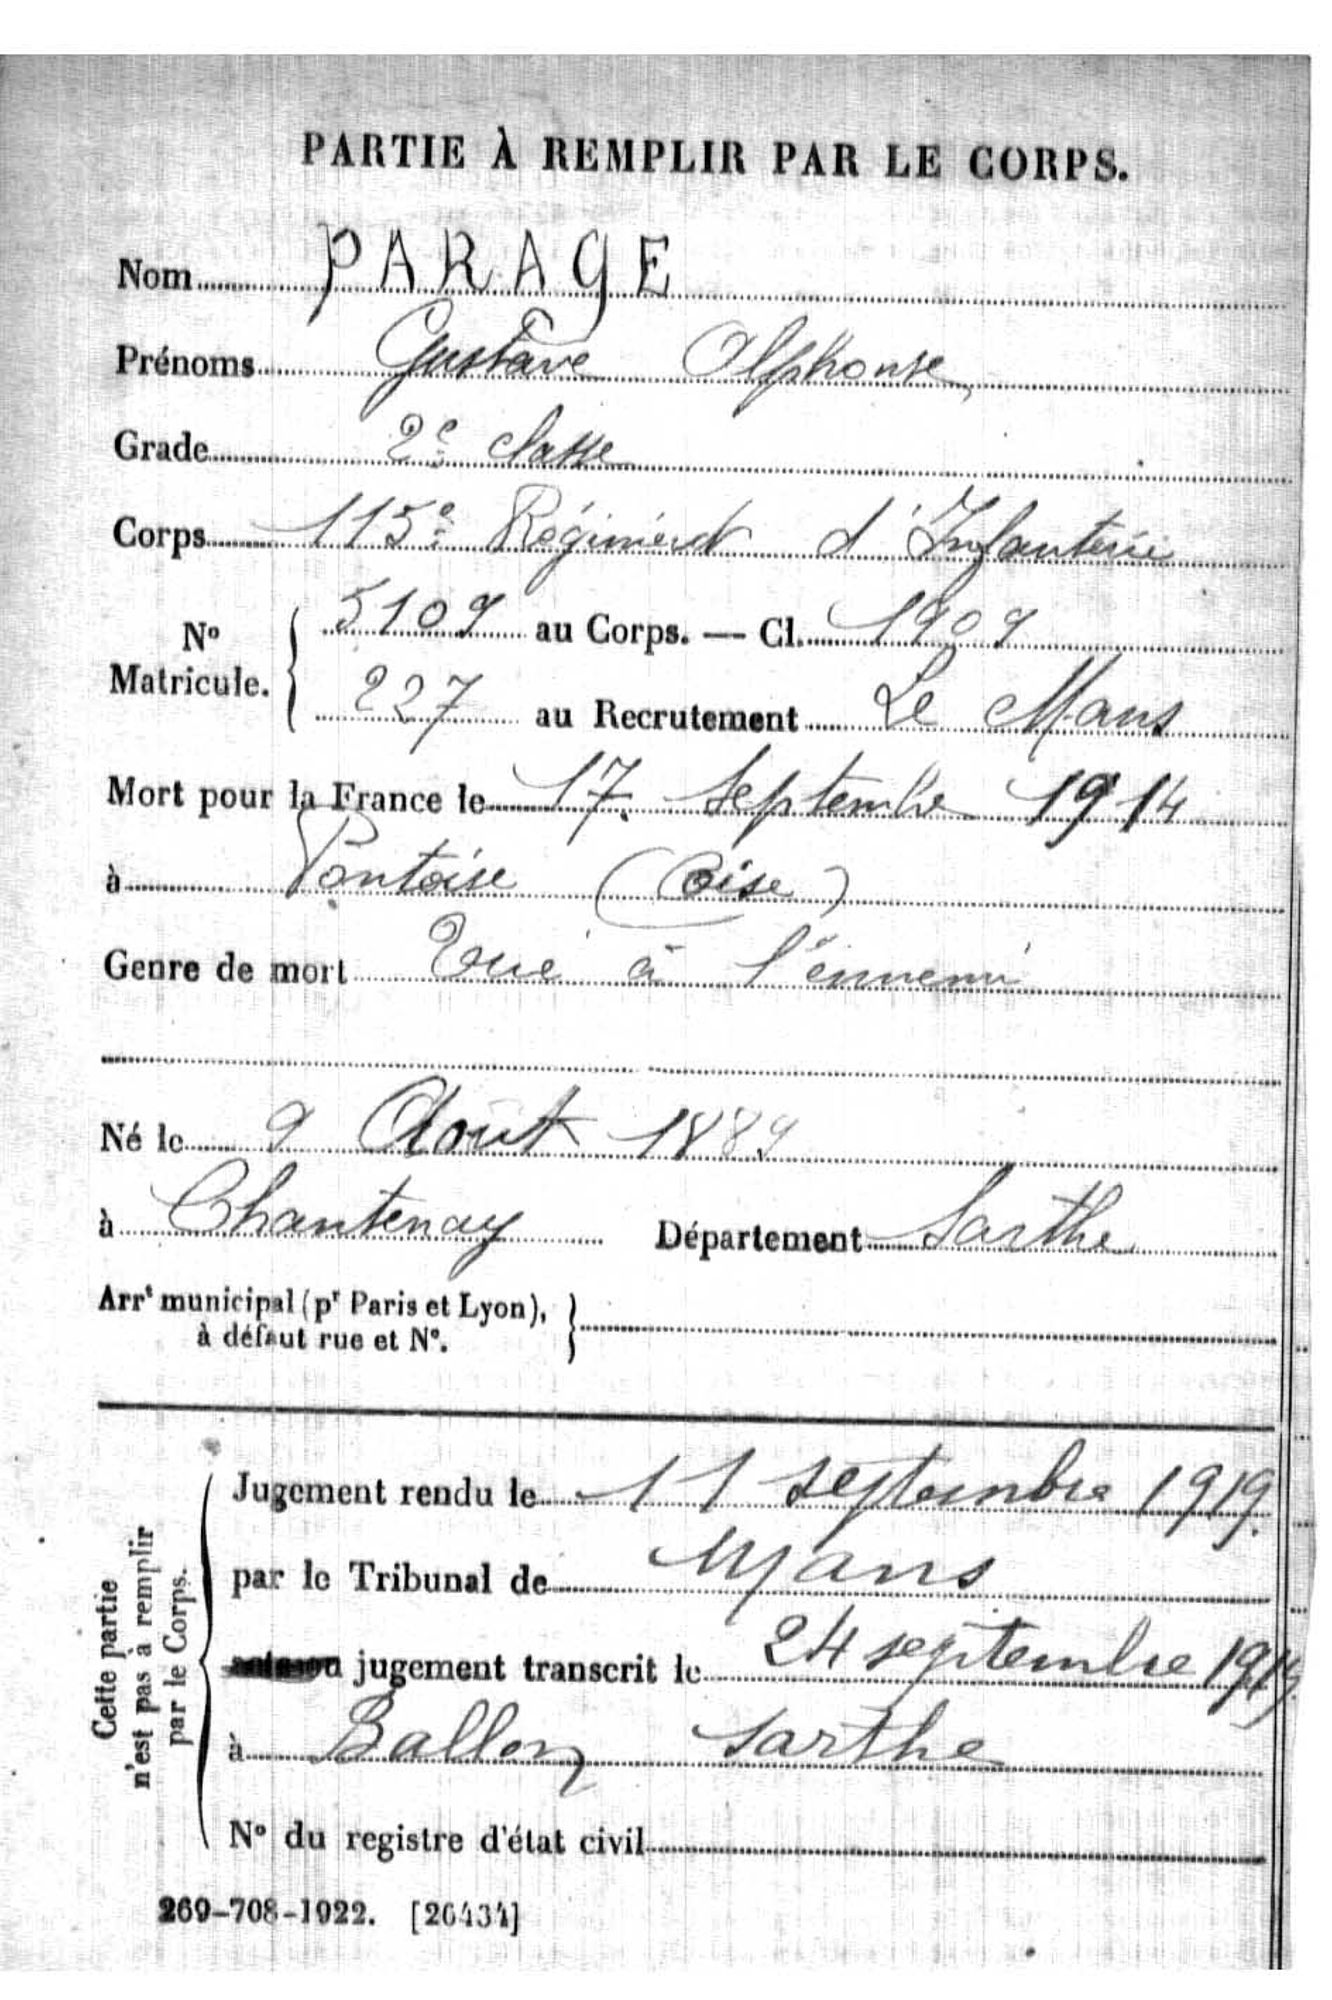 PARTIE À REMPLIR PAR LE CORPS.
Nom PARAGE
Prénoms Gustave Alphonse
Grade 2e classe
Corps 115e Régiment d'Infanterie
No Matricule. { 5109 au Corps. — Cl. 1909
227 au Recrutement Le Mans
Mort pour la France le 17 Septembre 1914
à Pontoise (Oise)
Genre de mort Tué à l'ennemi
Né le 9 Août 1889
à Chantenay Département Sarthe
Arrt municipal (pr Paris et Lyon), }
à défaut rue et No.
Cette partie
n'est pas à remplir
par le Corps.
Jugement rendu le 11 septembre 1919.
par le Tribunal de Mans
jugement transcrit le 24 septembre 1919.
à Ballon Sarthe
No du registre d'état civil
269-708-1922. [26434]